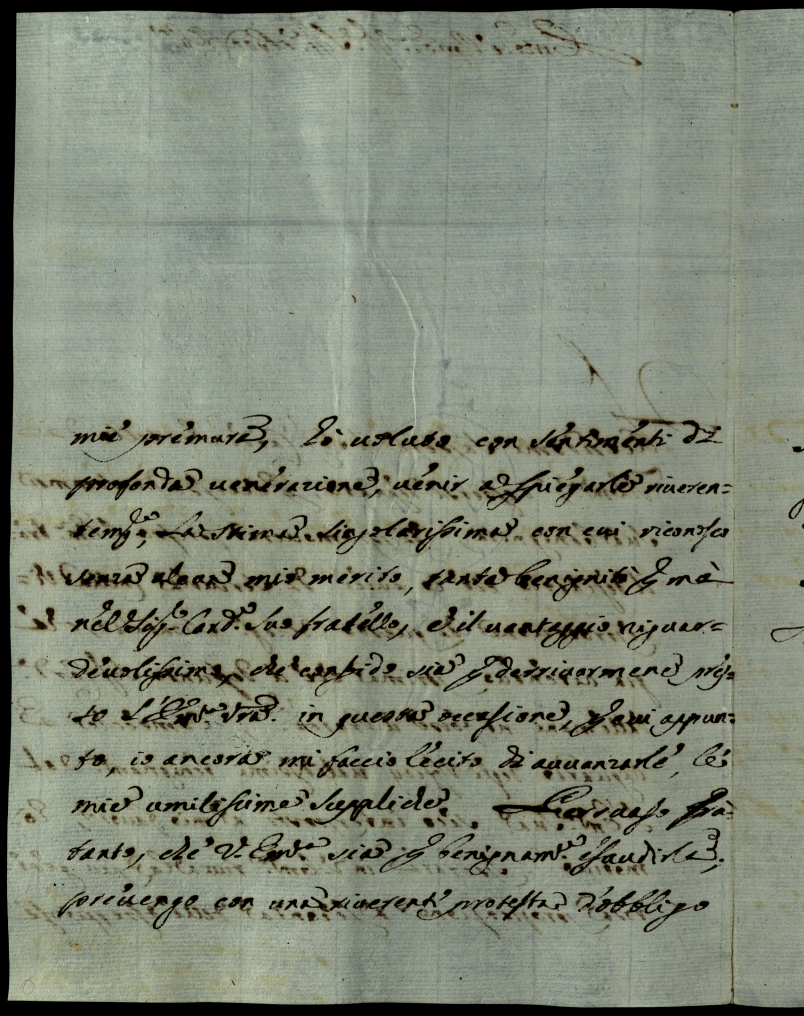 mie premure, hò voluto con sentimenti di
profonda venerazione, venir a spiegarle riveren=
tem.e, La stima singolarissima con cui riconosco
senza alcun mio merito, tanta benignità p me
nel Sig.r Card.e Suo fratello, e il vantaggio riguar=
devolissimo, che confido sia p derrivarmene pres=
so l'Em.za Vra. in questa occasione, p cui appun=
to, io ancora mi faccio lecito di avvanzarle, le
mie umilissime suppliche. Persuaso fra=
tanto, che V. Em.za sia p benignam.te esaudirle,
prevengo con una riverente protesta d'obbligo